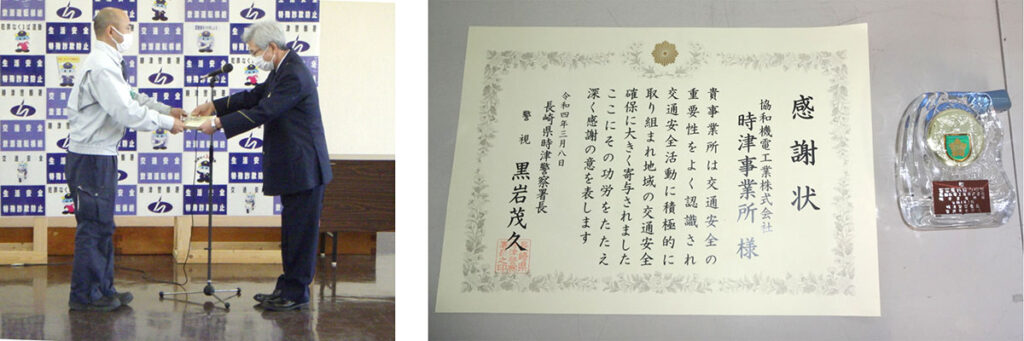 交通安全
飲酒運転根絶
特殊詐欺防止
感謝状
協和機電工業株式会社
時津事業所 様
貴事業所は交通安全の
重要性をよく認識され
交通安全活動に積極的に
取り組まれ地域の交通安全
確保に大きく寄与されました
ここにその功労をたたえ
深く感謝の意を表します
令和四年三月八日
長崎県時津警察署長
警視 黒岩茂久